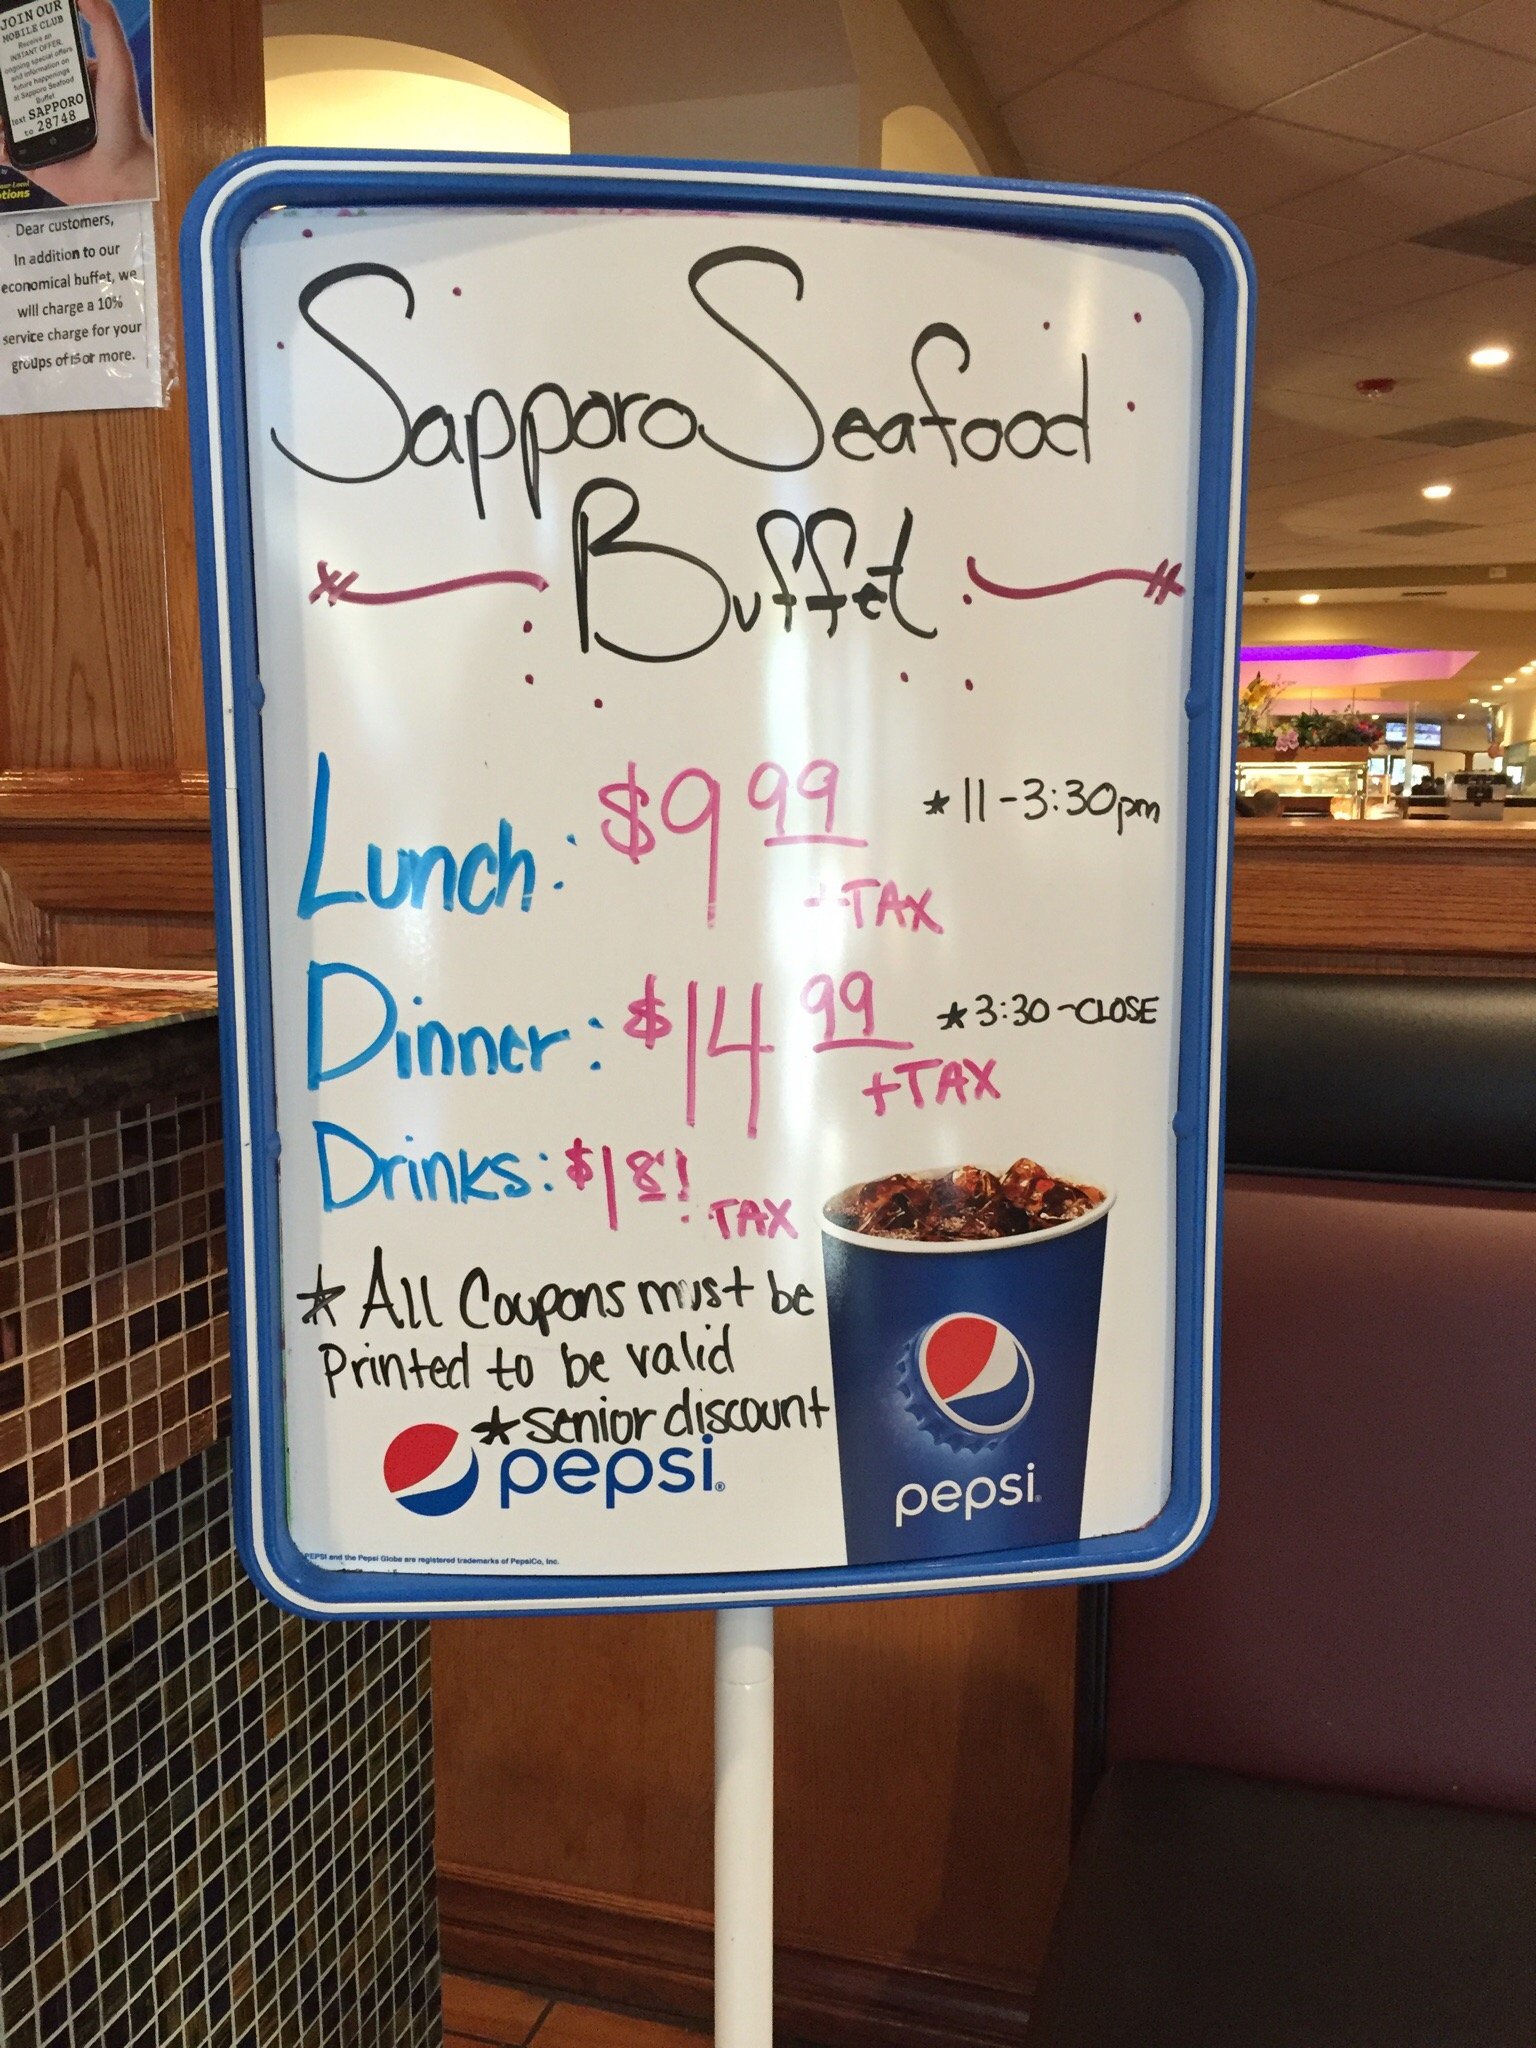 JOIN OUR
MOBILE CLUB
Receive an
INSTANT OFFER,
ongoing special offers
and information on
future happenings
at Sapporo Seafood
Buffet
text SAPPORO
to 28748
Dear customers,
In addition to our
economical buffet, we
will charge a 10%
service charge for your
groups of 15 or more.
Sapporo Seafood
Buffet
Lunch: $9.99 *11-3:30pm
+TAX
Dinner: $14.99 *3:30-CLOSE
+TAX
Drinks: $1
TAX
*All Coupons must be
printed to be valid
*senior discount
pepsi
pepsi
PEPSI and the Pepsi Globe are registered trademarks of PepsiCo, Inc.